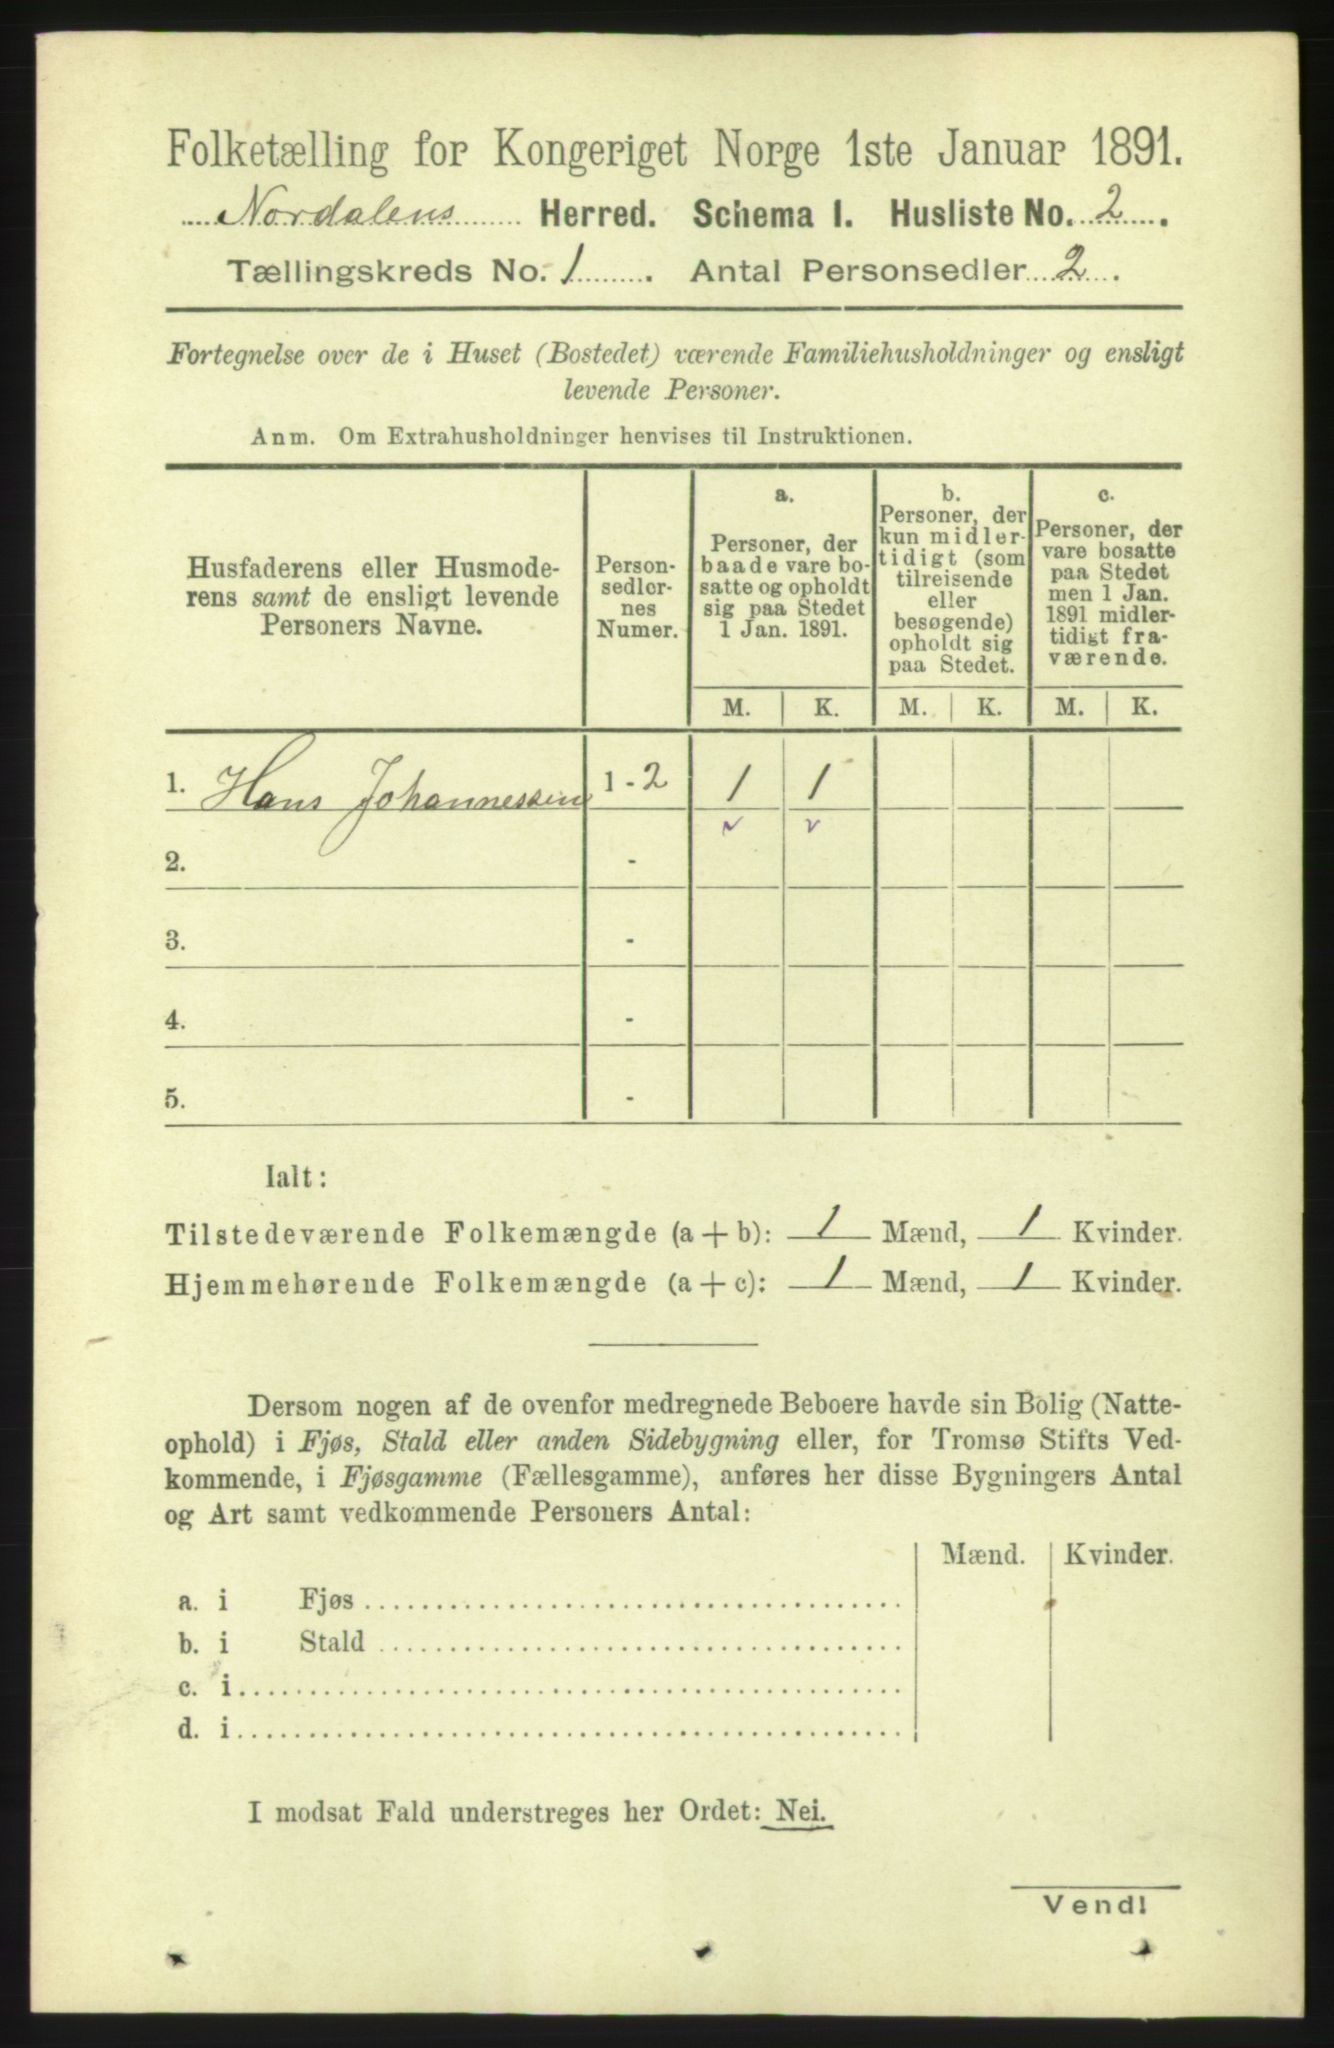 Folketælling for Kongeriget Norge 1ste Januar 1891.
Nordalens Herred. Schema I. Husliste No. 2.
Tællingskreds No. 1. Antal Personsedler 2.
Fortegnelse over de i Huset (Bostedet) værende Familiehusholdninger og ensligt
levende Personer.
Anm. Om Extrahusholdninger henvises til Instruktionen.
Husfaderens eller Husmode-
rens samt de ensligt levende
Personers Navne.
Person-
sedler-
nes
Numer.
a.
Personer, der
baade vare bo-
satte og opholdt
sig paa Stedet
1 Jan. 1891.
b.
Personer, der
kun midler-
tidigt (som
tilreisende
eller
besøgende)
opholdt sig
paa Stedet.
c.
Personer, der
vare bosatte
paa Stedet
men 1 Jan.
1891 midler-
tidigt fra-
værende.
M. K. M. K. M. K.
1. Hans Johannessen 1 - 2 1 1
2. -
3. -
4. -
5. -
Ialt:
Tilstedeværende Folkemængde (a + b): 1 Mænd, 1 Kvinder.
Hjemmehørende Folkemængde (a + c): 1 Mænd, 1 Kvinder.
Dersom nogen af de ovenfor medregnede Beboere havde sin Bolig (Natte-
ophold) i Fjøs, Stald eller anden Sidebygning eller, for Tromsø Stifts Ved-
kommende, i Fjøsgamme (Fællesgamme), anføres her disse Bygningers Antal
og Art samt vedkommende Personers Antal:
Mænd. Kvinder.
a. i Fjøs
b. i Stald
c. i
d. i
I modsat Fald understreges her Ordet: Nei.
Vend!